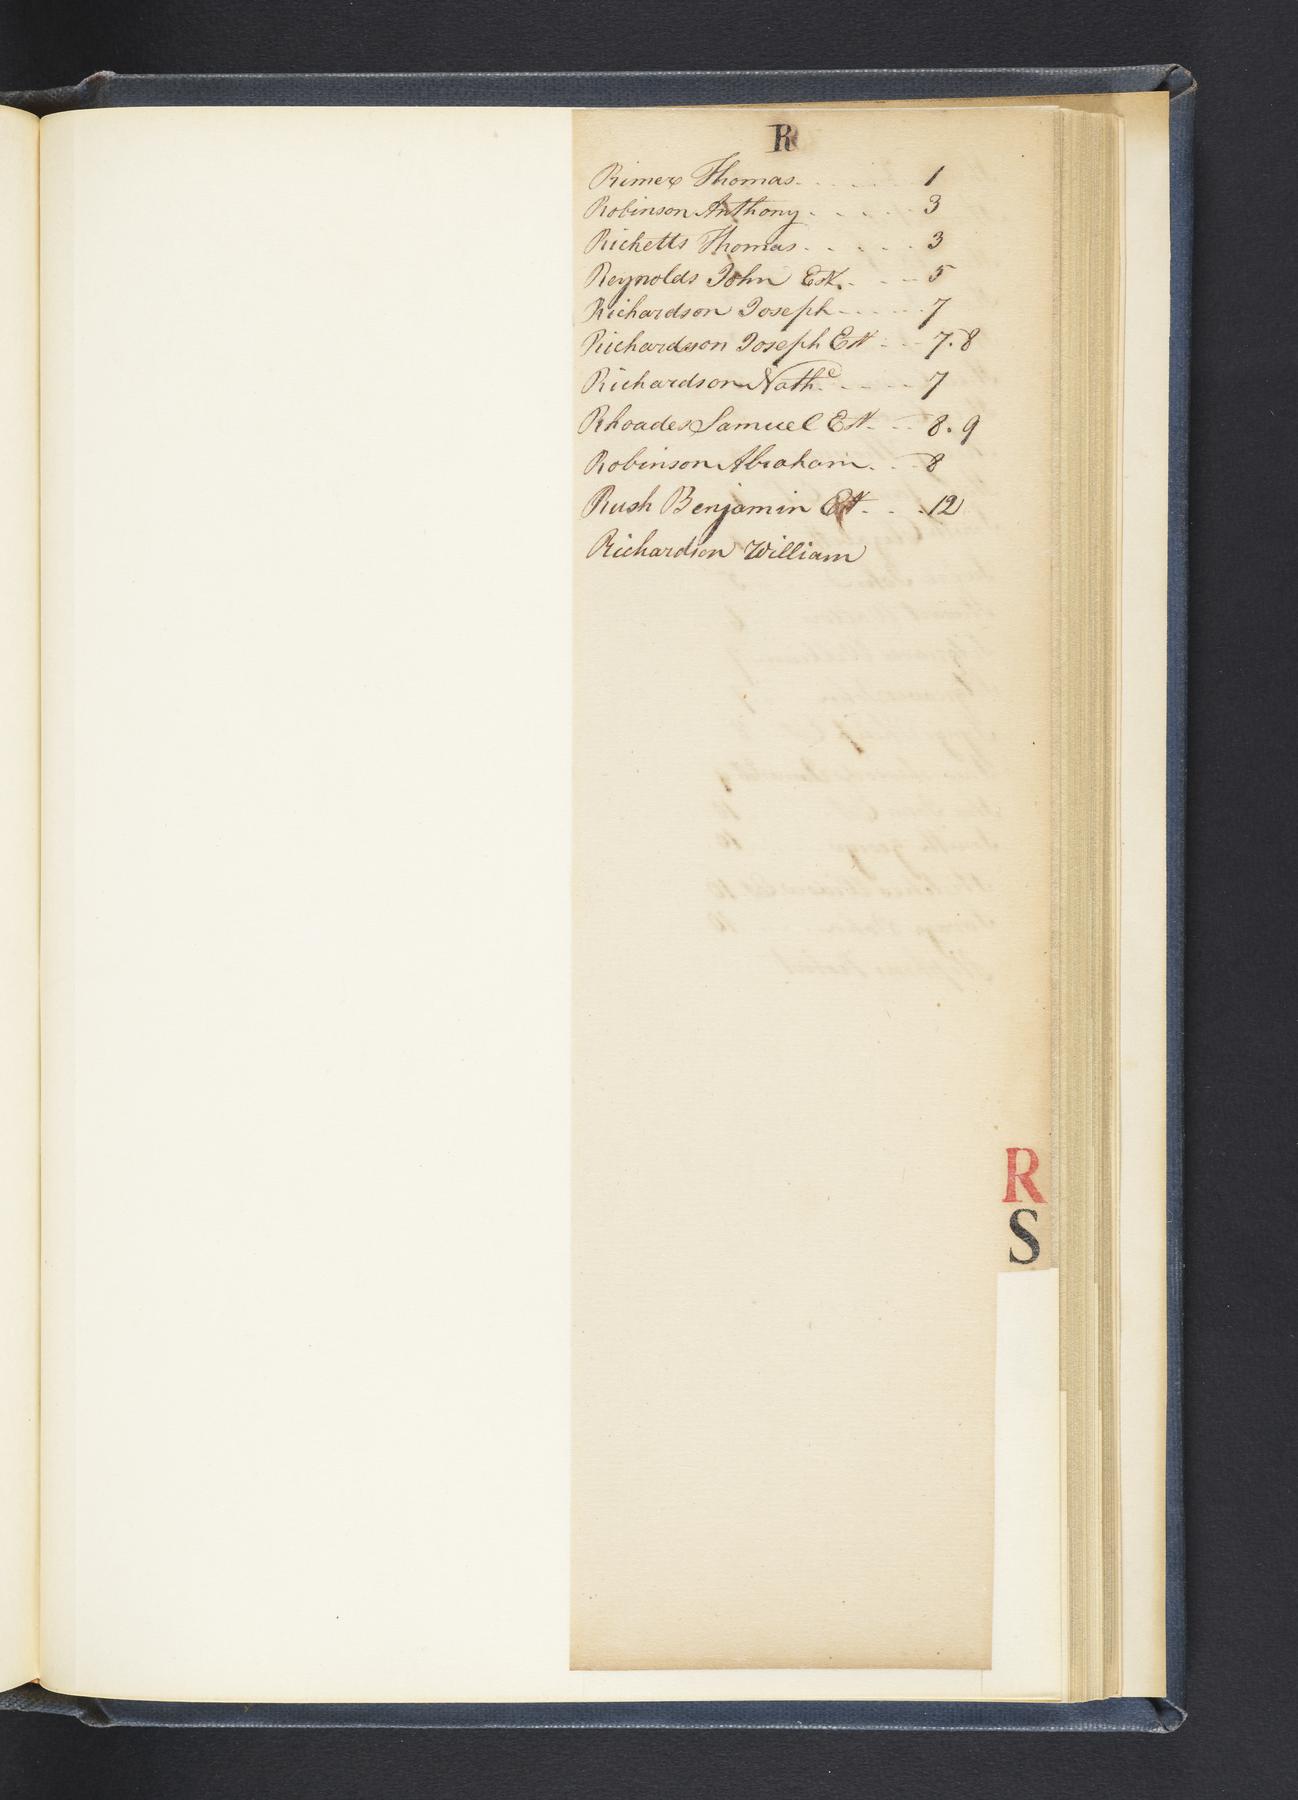 R
Rimer Thomas. . . . . . 1
Robinson Anthony . . . . . 3
Ricketts Thomas . . . . . 3
Reynolds John Est. . - - 5
Richardson Joseph - - - - - 7
Richardson Joseph Est - - - 7. 8
Richardson Nath.e - - - - 7
Rhoades Samuel Est. - - 8. 9
Robinson Abraham. . . 8
Rush Benjamin Est. . . 12
Richardson William
R
S